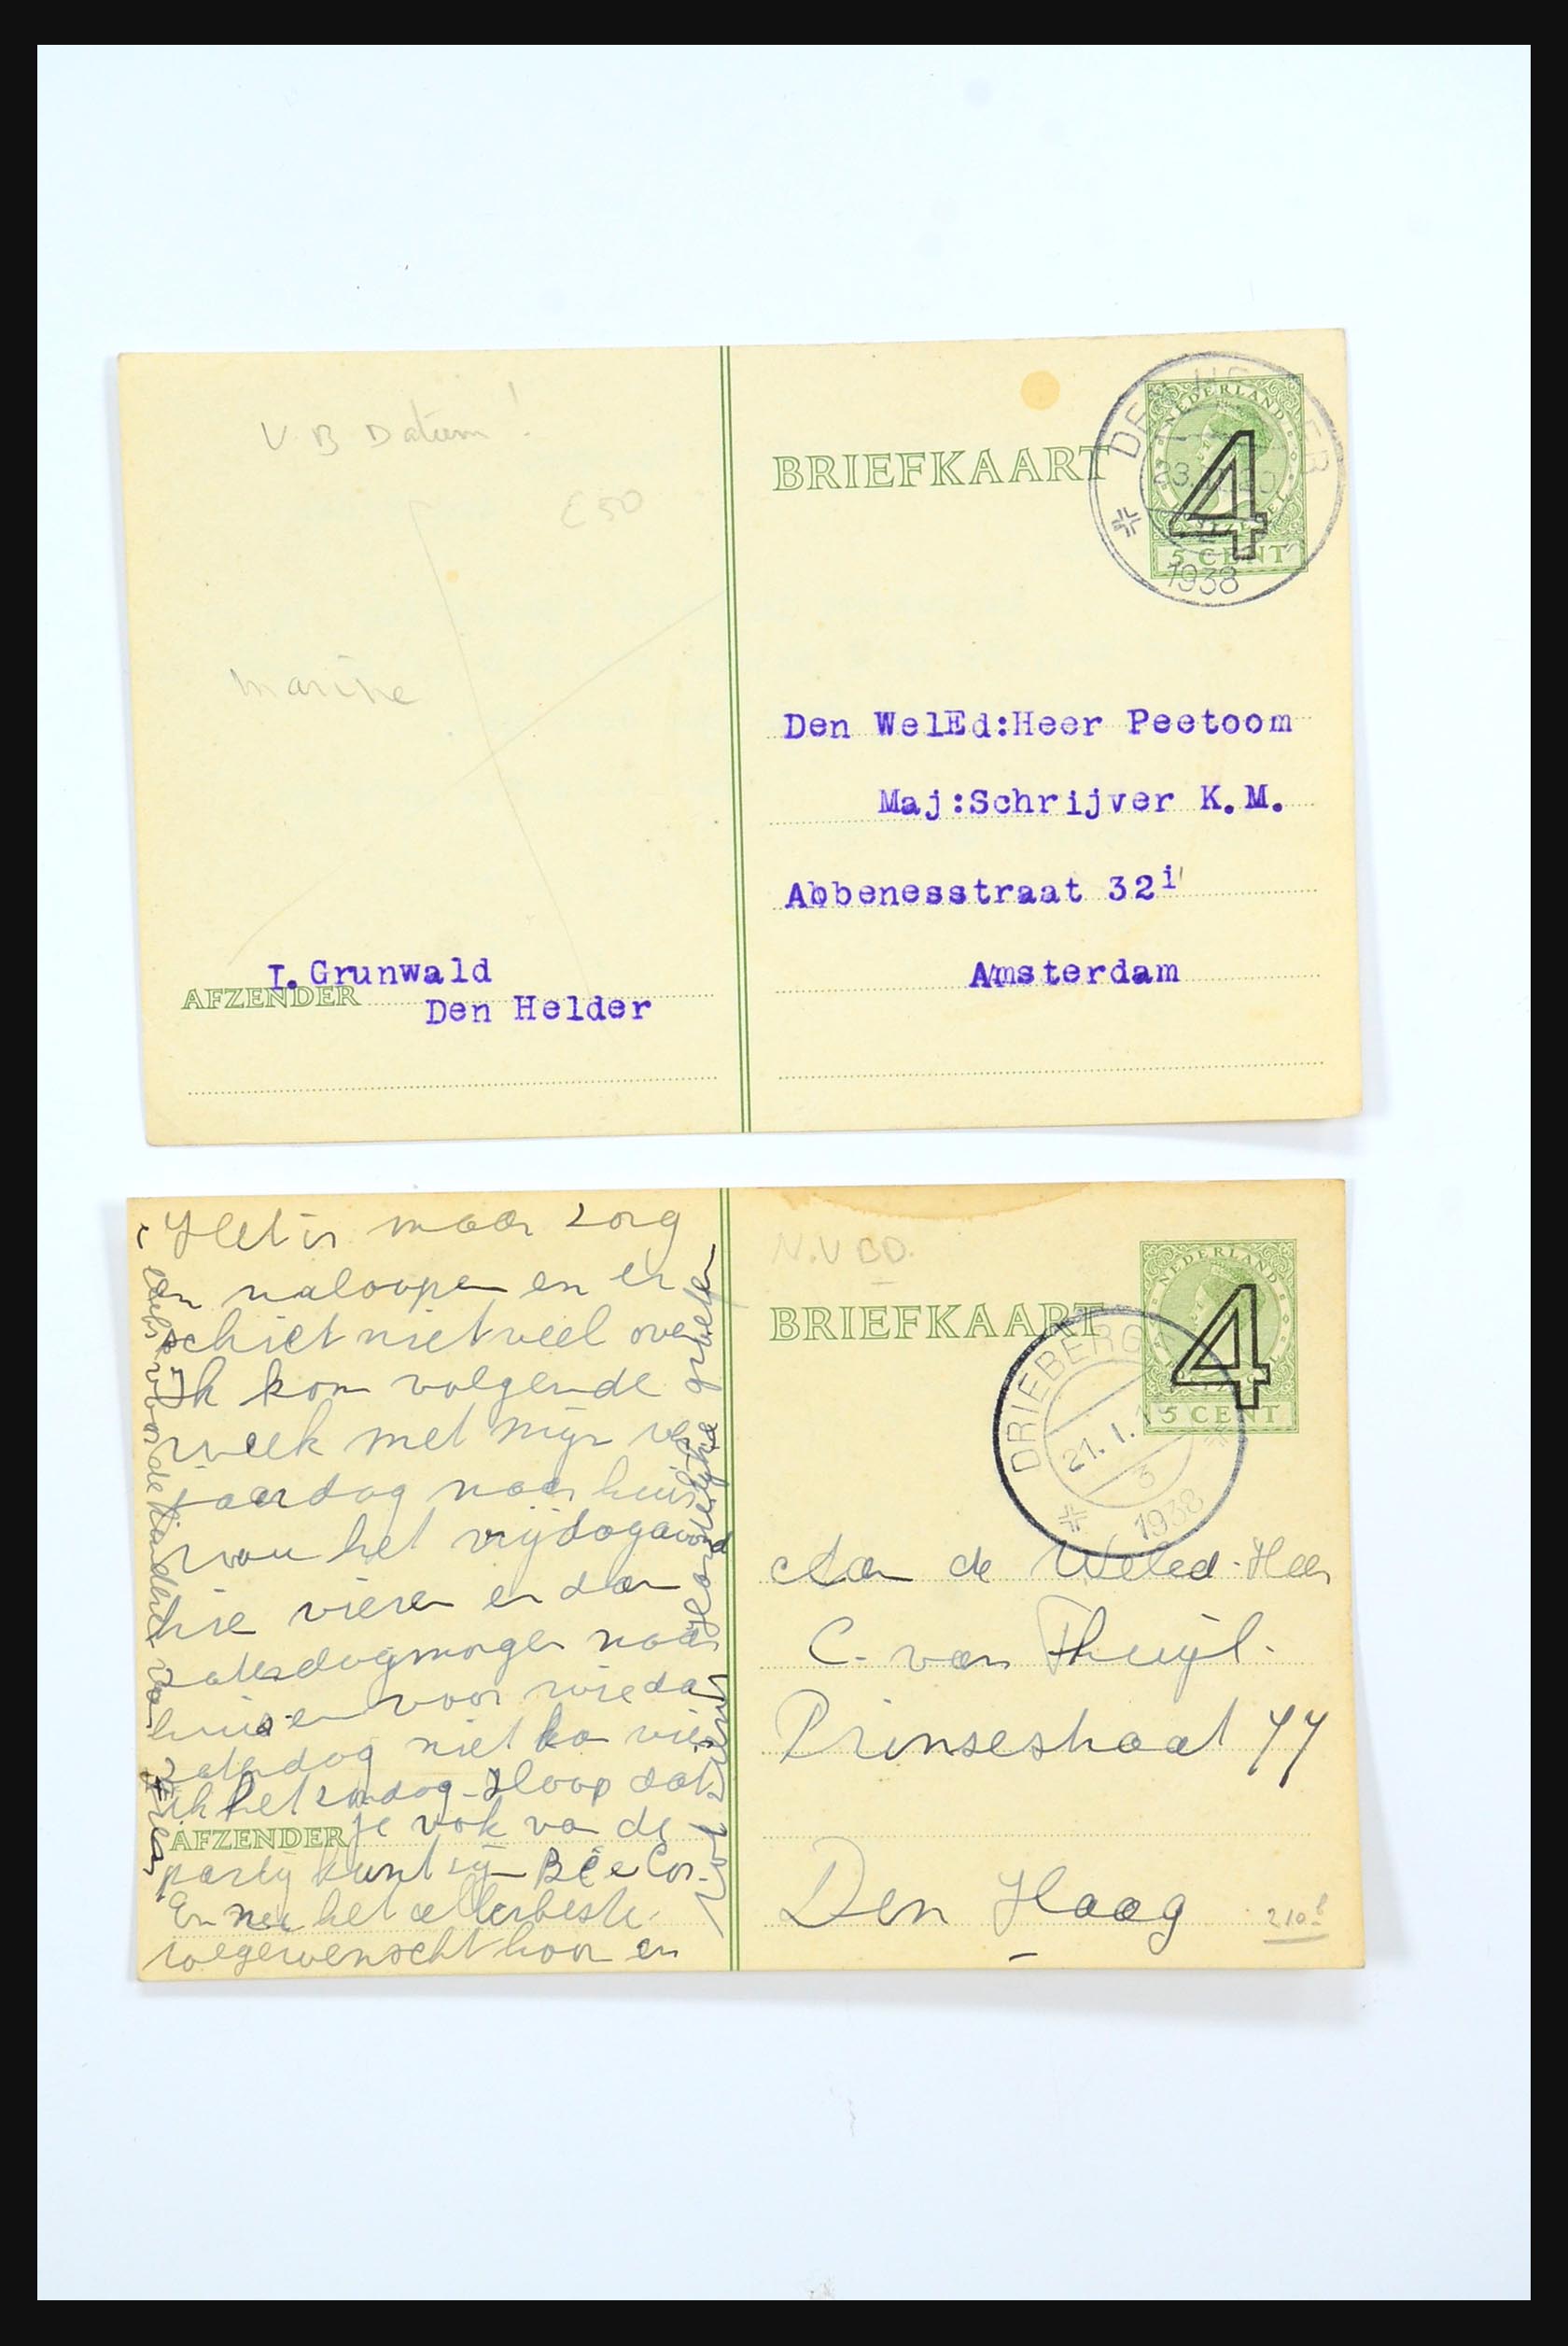 V.B Datum!
£50
BRIEFKAART
NEDERLAND
4
5 CENT
1938
marine
Den WelEd:Heer Peetoom
Maj:Schrijver K.M.
Abbenesstraat 32i
Amsterdam
I.Grunwald
AFZENDER
Den Helder
Het is maar zorg
en naloopen en er
schiet niet veel over
Ik kom volgende
week met mijn ver
jaardag naar huis
vrijdagavond
hie vieren en dan
zaterdagmorgen naar
huis en voor wie dan
zaterdag niet kan vier
ik het zondag. Hoop dat
je ook van de
AFZENDER
partij kunt zijn
En nu het allerbeste
toegewenscht hoor en
hartelijke groeten
ook voor de kinderen van
N.V BD.
BRIEFKAART
NEDERLAND
4
5 CENT
DRIEBERG
21.I.
3
1938
Aan de Weled. Heer
C. van Thuijl.
Prinsestraat 77
Den Haag
210